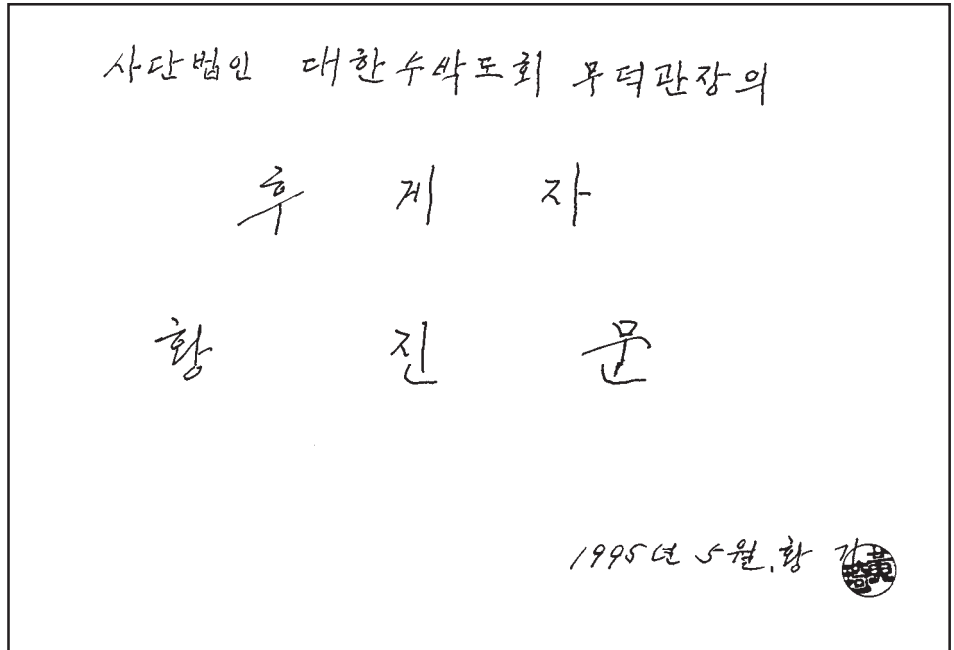 사단법인 대한수박도회 무덕관장의
후 계 자
황 진 문
1995년 5월. 황 기
黃琦